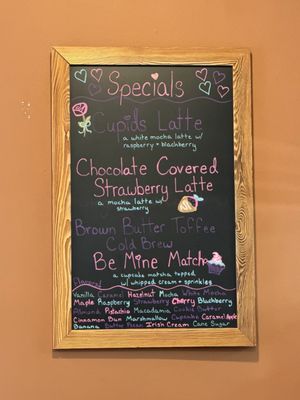 Specials
Cupids Latte
a white mocha latte w/
raspberry + blackberry
Chocolate Covered
Strawberry Latte
a mocha latte w/
strawberry
Brown Butter Toffee
Cold Brew
Be Mine Matcha
a cupcake matcha topped
w/ whipped cream + sprinkles
Flavored
Vanilla Caramel Hazelnut Mocha White Mocha
Maple Raspberry Strawberry Cherry Blackberry
Almond Pistachio Macadamia Cookie Butter
Cinnamon Bun Marshmallow Cupcake Caramel Apple
Banana Butter Pecan Irish Cream Cane Sugar